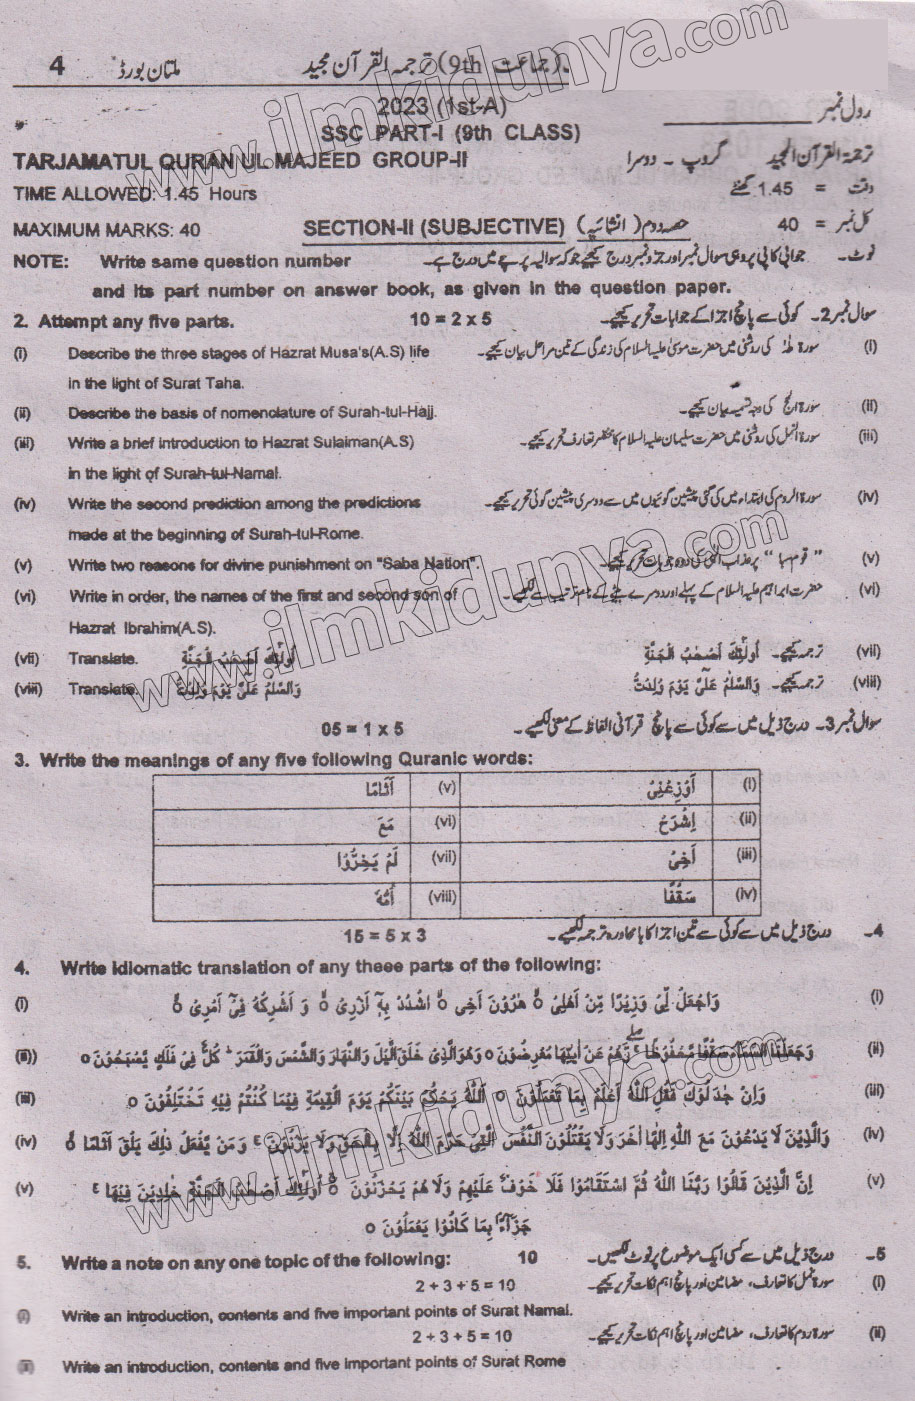 4 ملتان بورڈ ترجمہ القرآن مجید (جماعت 9th)
2023 (1st-A) رول نمبر
SSC PART-I (9th CLASS)
TARJAMATUL QURAN UL MAJEED GROUP-II گروپ - دوسرا ترجمۃ القرآن المجید
TIME ALLOWED: 1.45 Hours وقت = 1.45 گھنٹے
MAXIMUM MARKS: 40 SECTION-II (SUBJECTIVE) حصہ دوم (انشائیہ) کل نمبر = 40
NOTE: Write same question number نوٹ۔ جوابی کاپی پر وہی سوال نمبر اور جزو نمبر درج کیجیے جو کہ سوالیہ پرچے میں درج ہے۔
and its part number on answer book, as given in the question paper.
2. Attempt any five parts. 10 = 2 x 5 سوال نمبر 2۔ کوئی سے پانچ اجزا کے جوابات تحریر کیجیے۔
(i) Describe the three stages of Hazrat Musa's(A.S) life سورۃ طٰہٰ کی روشنی میں حضرت موسیٰ علیہ السلام کی زندگی کے تین مراحل بیان کیجیے۔ (i)
in the light of Surat Taha.
(ii) Describe the basis of nomenclature of Surah-tul-Hajj. سورۃ الحج کی وجہ تسمیہ بیان کیجیے۔ (ii)
(iii) Write a brief introduction to Hazrat Sulaiman(A.S) سورۃ النمل کی روشنی میں حضرت سلیمان علیہ السلام کا مختصر تعارف تحریر کیجیے۔ (iii)
in the light of Surah-tul-Namal.
(iv) Write the second prediction among the predictions سورۃ الروم کی ابتداء میں کی گئی پیشین گوئیوں میں سے دوسری پیشین گوئی تحریر کیجیے۔ (iv)
made at the beginning of Surah-tul-Rome.
(v) Write two reasons for divine punishment on "Saba Nation". "قوم سبا" پر عذاب الٰہی کی دو وجوہات تحریر کیجیے۔ (v)
(vi) Write in order, the names of the first and second son of حضرت ابراہیم علیہ السلام کے پہلے اور دوسرے بیٹے کے نام ترتیب سے لکھیے۔ (vi)
Hazrat Ibrahim(A.S).
(vii) Translate. اُولٰٓئِكَ اَصْحٰبُ الْجَنَّةِ ترجمہ کیجیے۔ اُولٰٓئِكَ اَصْحٰبُ الْجَنَّةِ (vii)
(viii) Translate. وَالسَّلٰمُ عَلَىَّ يَوْمَ وُلِدْتُّ ترجمہ کیجیے۔ وَالسَّلٰمُ عَلَىَّ يَوْمَ وُلِدْتُّ (viii)
05 = 1 x 5 سوال نمبر 3۔ درج ذیل میں سے کوئی سے پانچ قرآنی الفاظ کے معنی لکھیے۔
3. Write the meanings of any five following Quranic words:
(i) اَوْزِعْنِىْ (v) اَثَامًا
(ii) اِشْرَحْ (vi) مَعَ
(iii) اَخِىْ (vii) لَمْ يَخِرُّوْا
(iv) سَقْفًا (viii) اُمَّةً
15 = 5 x 3 4۔ درج ذیل میں سے کوئی سے تین اجزا کا بامحاورہ ترجمہ لکھیے۔
4. Write idiomatic translation of any theee parts of the following:
(i) وَاجْعَلْ لِّىْ وَزِيْرًا مِّنْ اَهْلِىْ ۝ هٰرُوْنَ اَخِى ۝ اشْدُدْ بِهٖٓ اَزْرِىْ ۝ وَ اَشْرِكْهُ فِىْٓ اَمْرِىْ ۝ (i)
(ii) وَجَعَلْنَا السَّمَآءَ سَقْفًا مَّحْفُوْظًا ۖ وَّهُمْ عَنْ اٰيٰتِهَا مُعْرِضُوْنَ ۝ وَهُوَ الَّذِىْ خَلَقَ الَّيْلَ وَالنَّهَارَ وَالشَّمْسَ وَالْقَمَرَ ؕ كُلٌّ فِىْ فَلَكٍ يَّسْبَحُوْنَ ۝ (ii)
(iii) وَاِنْ جٰدَلُوْكَ فَقُلِ اللّٰهُ اَعْلَمُ بِمَا تَعْمَلُوْنَ ۝ اَللّٰهُ يَحْكُمُ بَيْنَكُمْ يَوْمَ الْقِيٰمَةِ فِيْمَا كُنْتُمْ فِيْهِ تَخْتَلِفُوْنَ ۝ (iii)
(iv) وَالَّذِيْنَ لَا يَدْعُوْنَ مَعَ اللّٰهِ اِلٰهًا اٰخَرَ وَلَا يَقْتُلُوْنَ النَّفْسَ الَّتِىْ حَرَّمَ اللّٰهُ اِلَّا بِالْحَقِّ وَلَا يَزْنُوْنَ ۚ وَمَنْ يَّفْعَلْ ذٰلِكَ يَلْقَ اَثَامًا ۝ (iv)
(v) اِنَّ الَّذِيْنَ قَالُوْا رَبُّنَا اللّٰهُ ثُمَّ اسْتَقَامُوْا فَلَا خَوْفٌ عَلَيْهِمْ وَلَا هُمْ يَحْزَنُوْنَ ۝ اُولٰٓئِكَ اَصْحٰبُ الْجَنَّةِ خٰلِدِيْنَ فِيْهَا ۚ (v)
جَزَآءًۢ بِمَا كَانُوْا يَعْمَلُوْنَ ۝
5. Write a note on any one topic of the following: 10 5۔ درج ذیل میں سے کسی ایک موضوع پر نوٹ لکھیں۔
2 + 3 + 5 = 10 سورۃ نمل کا تعارف، مضامین اور پانچ اہم نکات تحریر کیجیے۔ (i)
(i) Write an introduction, contents and five important points of Surat Namal.
2 + 3 + 5 = 10 سورۃ روم کا تعارف، مضامین اور پانچ اہم نکات تحریر کیجیے۔ (ii)
(ii) Write an introduction, contents and five important points of Surat Rome
www.ilmkidunya.com
www.ilmkidunya.com
www.ilmkidunya.com